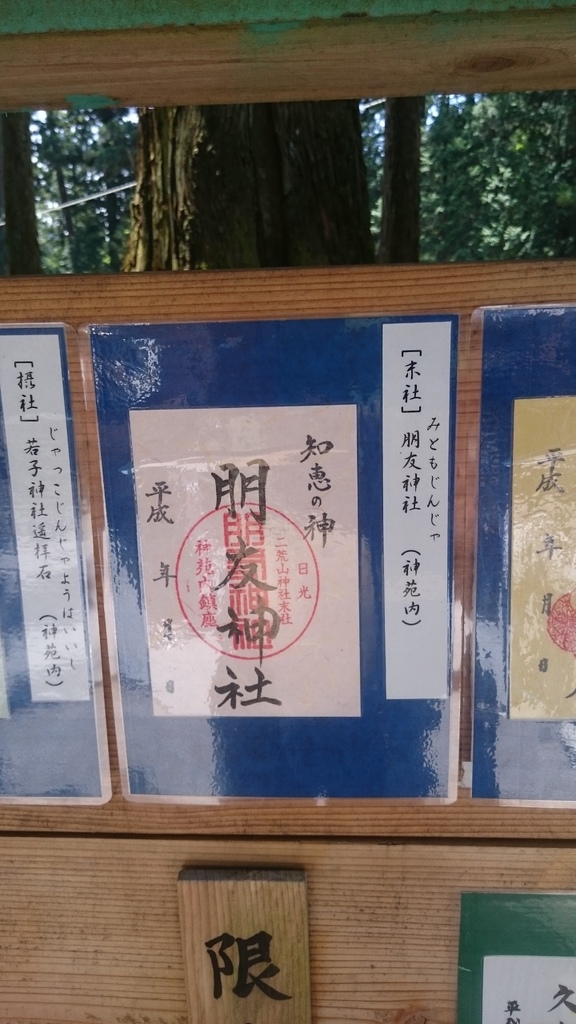 [末社] 朋友神社 (神苑内)
みともじんじゃ
知恵の神
朋友神社
平成 年 月 日
日光
二荒山神社末社
朋友神社
神苑内鎮座
[摂社] 若子神社遥拝石 (神苑内)
じゃっこじんじゃようはいいし
平成 年 月 日
限
久
平成